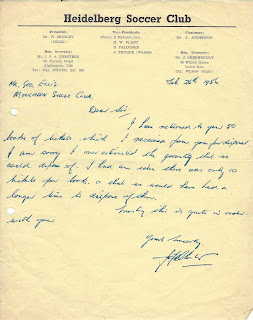 Heidelberg Soccer Club
President:
Mr. W. MORLEY
Vice-Presidents:
H. W. PLANT
D. FALCONER
A. THORPE
Chairman:
Mr. A. ANDERSON
Hon. Secretary:
Alphington, N20
Hon. Treasurer:
Mr. J.
26 Willow Grove
North Kew
Feb 26th 1956
Mr. Geo
Soccer Club.
Dear Sir,
I have returned to you 50
books of tickets which I received from you for disposal
I am sorry I over estimated the quantity that we
would dispose of. I had an idea there was only 10
tickets per book. & that we would have had a
longer time to dispose of them.
Trusting this is quite in order
with you
Yours Sincerely